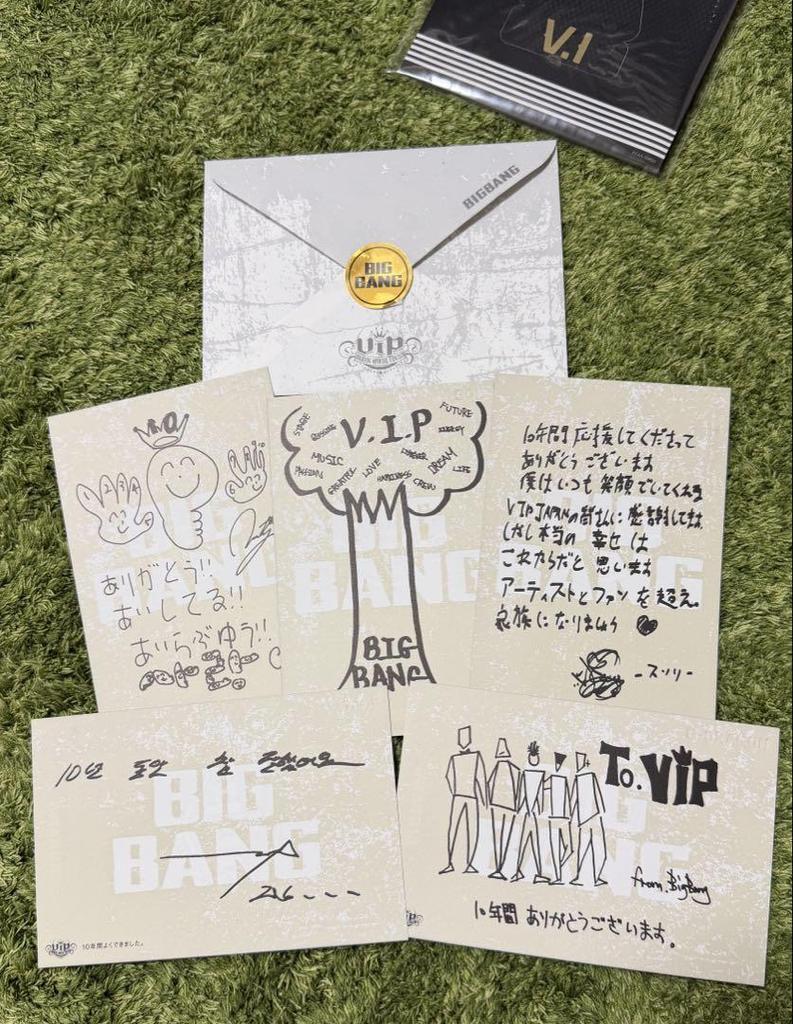 V.I
BIGBANG
BIG
BANG
ViP
1 2 3 4
6
ありがとう!!
あいしてる!!
あいらぶゆう!!
V.I.P
STAGE
FUTURE
ENERGY
MUSIC
PASSION
LOVE
FOREVER
DREAM
HAPPINESS
CREW
LIFE
BIG
BANG
10年間 応援してくださって
ありがとうございます
僕はいつも 笑顔でいてくれる
VIP JAPANの皆さんに 感謝してます
しかし本当の 幸せは
これからだと 思います
アーティストとファンを超え。
家族になりましょう
-スンリ-
BIG
BANG
10년 동안 참 잘했어요
ViP 10年間よくできました。
To. ViP
from. BigBang
10年間 ありがとうございます。